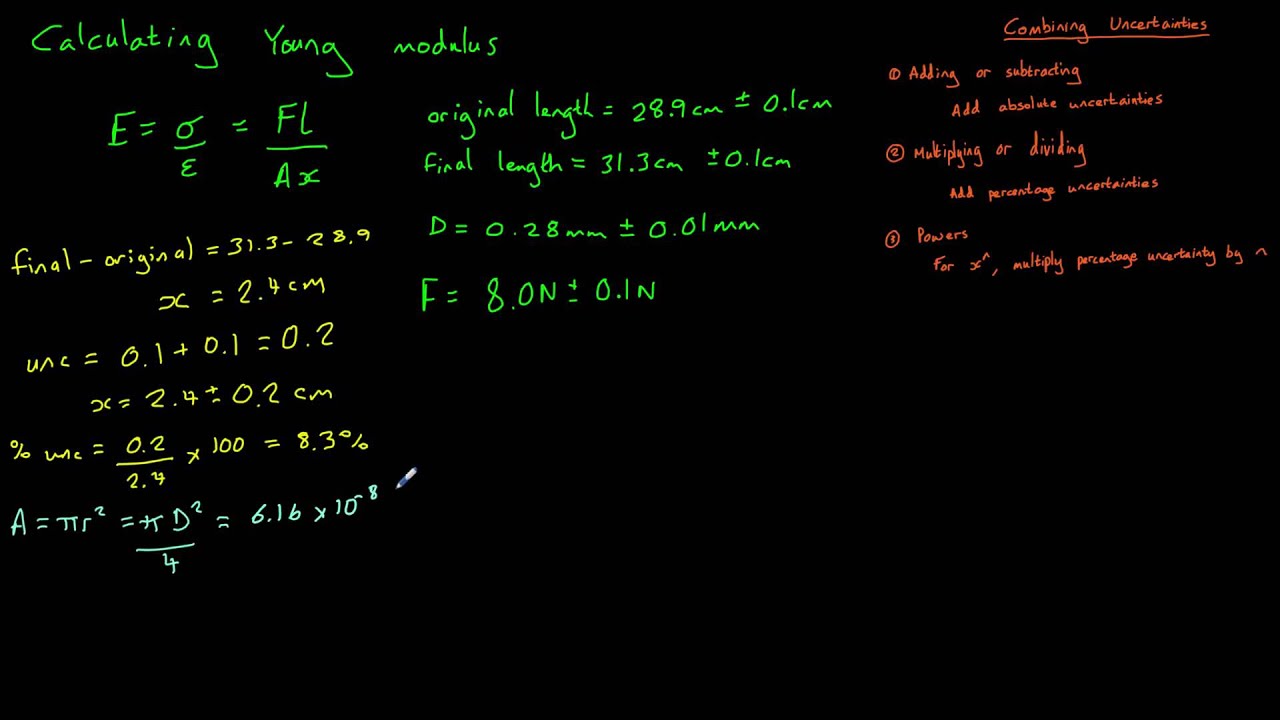 Calculating Young modulus
E = σ/ε = Fl/Ax
original length = 28.9cm ± 0.1cm
final length = 31.3cm ± 0.1cm
D = 0.28mm ± 0.01mm
F = 8.0N ± 0.1N
final - original = 31.3 - 28.9
x = 2.4cm
unc = 0.1 + 0.1 = 0.2
x = 2.4 ± 0.2 cm
% unc = 0.2/2.4 × 100 = 8.3%
A = πr² = πD²/4 = 6.16 × 10⁻⁸
Combining Uncertainties
① Adding or subtracting
Add absolute uncertainties
② Multiplying or dividing
Add percentage uncertainties
③ Powers
For xⁿ, multiply percentage uncertainty by n